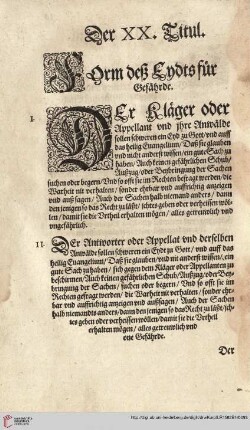 Der XX. Titul.
Form deß Eydts für
Gefährde.
I.
Der Kläger oder
Appellant vnd jhre Anwälde
sollen schweren ein Eyd zu Gott/ vnd auff
das heilig Euangelium/ Daß sie glauben
vnd nicht anderst wissen/ ein gute Sach zu
haben/ Auch keinen gefährlichen Schub/
Auffzug/ oder Verlängerung der Sachen
suchen oder begern/ Vnd so offt sie im Rechten befragt werden/ die
Warheit nit verhalten/ sonder ehrbar vnd auffrichtig anzeigen
vnd aussagen/ Auch der Sachen halb niemands anders/ dann
den jenigen/ so das Recht zuläßt/ ichtes geben oder verheissen wöl-
len/ damit sie die Vrtheil erhalten mögen/ alles getreuwlich vnd
vngefährlich.
II.
Der Antworter oder Appellat vnd derselben
Anwälde sollen schweren ein Eyde zu Gott/ vnd auff das
heilig Euangelium/ Daß sie glauben/ vnd nit anderst wissen/ ein
gute Sach zu haben/ sich gegen dem Kläger oder Appellanten zu
beschirmen/ Auch keinen gefährlichen Schub/ Auffzug/ oder
der Sachen/ suchen oder begern/ Vnd so offt sie im
Rechten gefragt werden/ die Warheit nit verhalten/ sonder ehr-
bar vnd auffrichtig anzeigen vnd aussagen/ Auch der Sachen
halb niemands anders/ dann den jenigen/ so das Recht zuläßt/ ich-
tes geben oder verheissen wöllen/ damit sie die Vrtheil
erhalten mögen/ alles getreuwlich vnd
one Gefährde.
Der